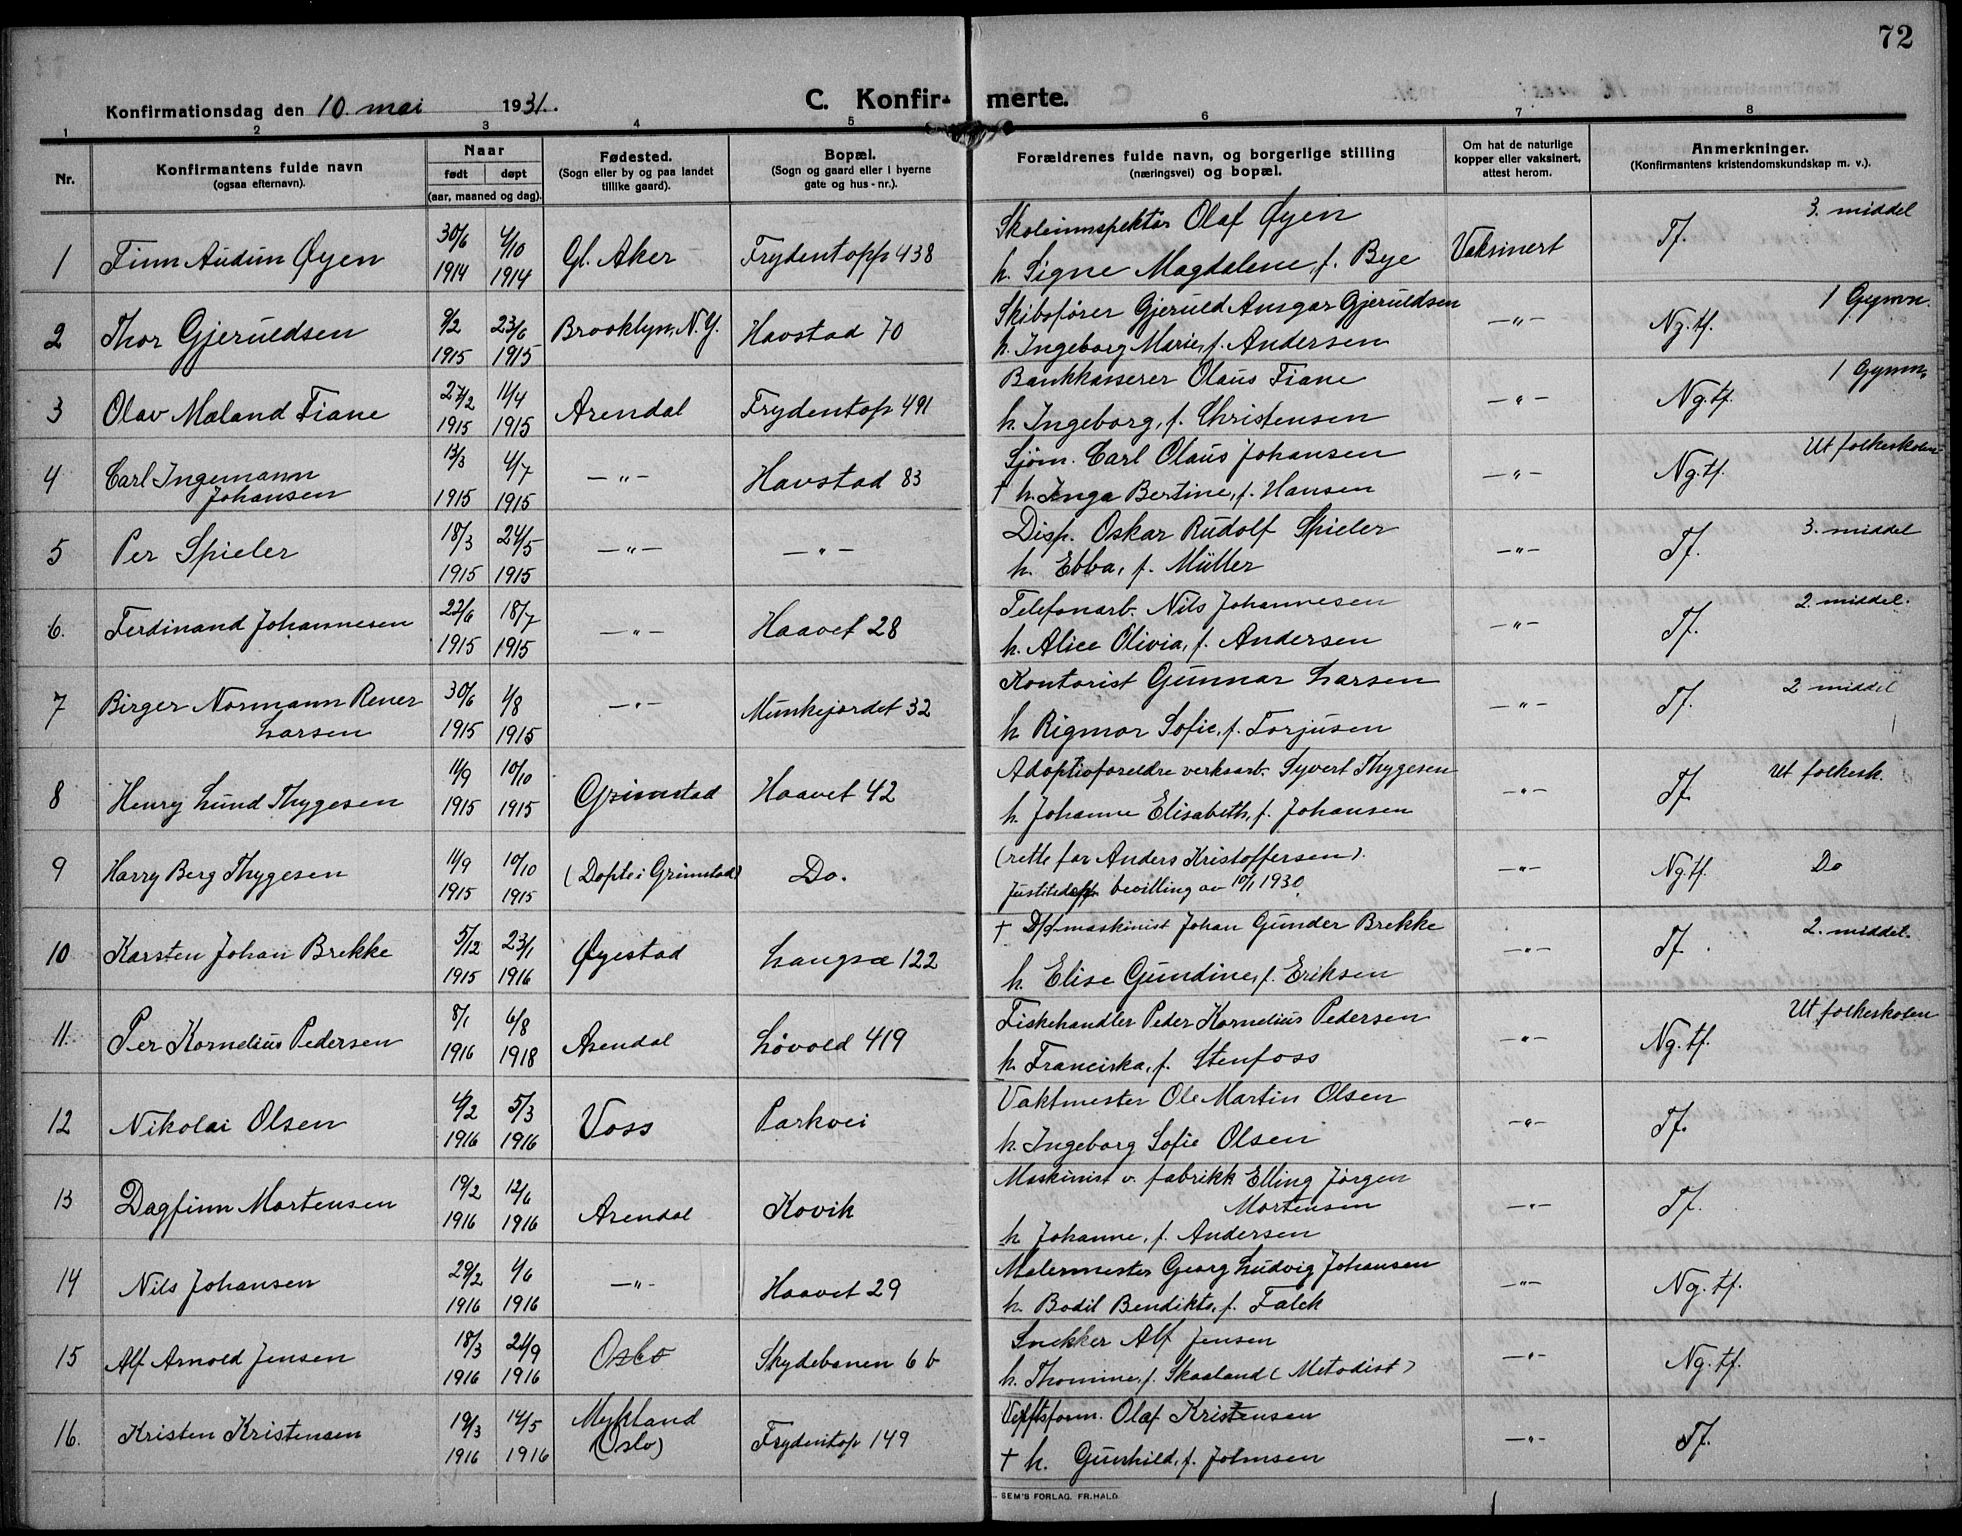 72
Konfirmationsdag den 10. mai 1931.
C. Konfir- merte.
1 2 3 4 5 6 7 8
Nr.
Konfirmantens fulde navn
(ogsaa efternavn).
Naar
født døpt
(aar, maaned og dag).
Fødested.
(Sogn eller by og paa landet
tillike gaard).
Bopæl.
(Sogn og gaard eller i byerne
gate og hus-nr.).
Forældrenes fulde navn, og borgerlige stilling
(næringsvei) og bopæl.
Om hat de naturlige
kopper eller vaksinert,
attest herom.
Anmerkninger.
(Konfirmantens kristendomskundskap m. v.).
1 Finn Audun Øyen 30/6 1914 4/10 1914 Gl. Aker Frydentopp 438 Skoleinnspektør Olaf Øyen
h. Signe Magdalene, f. Bye Vaksinert Tf. 3. middel
2 Thor Gjeruldsen 9/2 1915 23/6 1915 Brooklyn, N.Y. Havstad 70 Skibsfører Gjeruld Ansgar Gjeruldsen
h. Ingeborg Marie, f. Andersen —„— Ng. tf. 1 Gymn.
3 Olav Maland Fiane 27/2 1915 11/4 1915 Arendal Frydentop 491 Bankkasserer Olaus Fiane
h. Ingeborg, f. Christensen —„— Ng. tf. 1 Gymn.
4 Carl Ingemann
Johansen 13/3 1915 4/7 1915 —„— Havstad 83 Sjøm. Carl Olaus Johansen
† h. Inga Bertine, f. Hansen —„— Ng. tf. Ut folkeskolen
5 Per Spieler 18/3 1915 24/5 1915 —„— —„— Disp. Oskar Rudolf Spieler
h. Ebba, f. Müller —„— Tf. 3. middel
6. Ferdinand Johannesen 22/6 1915 18/7 1915 —„— Haavet 28 Telefonarb. Nils Johannesen
h. Alice Olivia, f. Andersen —„— Tf. 2. middel.
7 Birger Normann Rener
Larsen 30/6 1915 1/8 1915 —„— Munkejordet 32 Kontorist Gunnar Larsen
h. Rigmor Sofie, f. Torjusen —„— Tf. 2 middel
8 Henry Lund Thygesen 11/9 1915 10/10 1915 Grimstad Haavet 42 Adoptivforeldre verksarb. Syvert Thygesen
h. Johanne Elisabeth, f. Johansen —„— Tf. Ut folkesk.
9 Harry Berg Thygesen 11/9 1915 10/10 1915 (Døpt i Grimstad) Do. (rette far Anders Kristoffersen).
bevilling av 10/1 1930. —„— Ng. tf. Do
10 Karsten Johan Brekke 5/12 1915 23/1 1916 Øyestad Langsæ 122 † D/S maskinist Johan Gunder Brekke
h. Elise Gundine, f. Eriksen —„— Tf. 2. middel.
11. Per Kornelius Pedersen 8/1 1916 6/8 1918 Arendal Løvold 419 Fiskehandler Peder Kornelius Pedersen
h. Franciska, f. Stenfoss —„— Ng. tf. Ut folkeskolen
12 Nikolai Olsen 4/2 1916 5/3 1916 Voss Parkvei Vaktmester Ole Martin Olsen
h. Ingeborg Sofie Olsen —„— Tf.
13 Dagfinn Mortensen 19/2 1916 12/6 1916 Arendal Kovik Maskinist v. fabrikk Elling Jørgen
Mortensen
h. Johanne, f. Andersen —„— Tf.
14 Nils Johansen 29/2 1916 4/6 1916 —„— Haavet 29 Malermester Georg Ludvig Johansen
h. Bodil Bendikte, f. Falck —„— Ng. tf.
15 Alf Arnold Jensen 18/3 1916 24/9 1916 Oslo Skydebanen 6 b Snekker Alf Jensen
h. Thomine, f. Skaaland (Metodist) —„— Ng. tf.
16. Kristen Kristensen 19/3 1916 14/5 1916 Mykland
(Oslo) Frydentop 149 Olaf Kristensen
† h. Gunhild, f. Johnsen —„— Tf.
SEM'S FORLAG. FR.HALD.